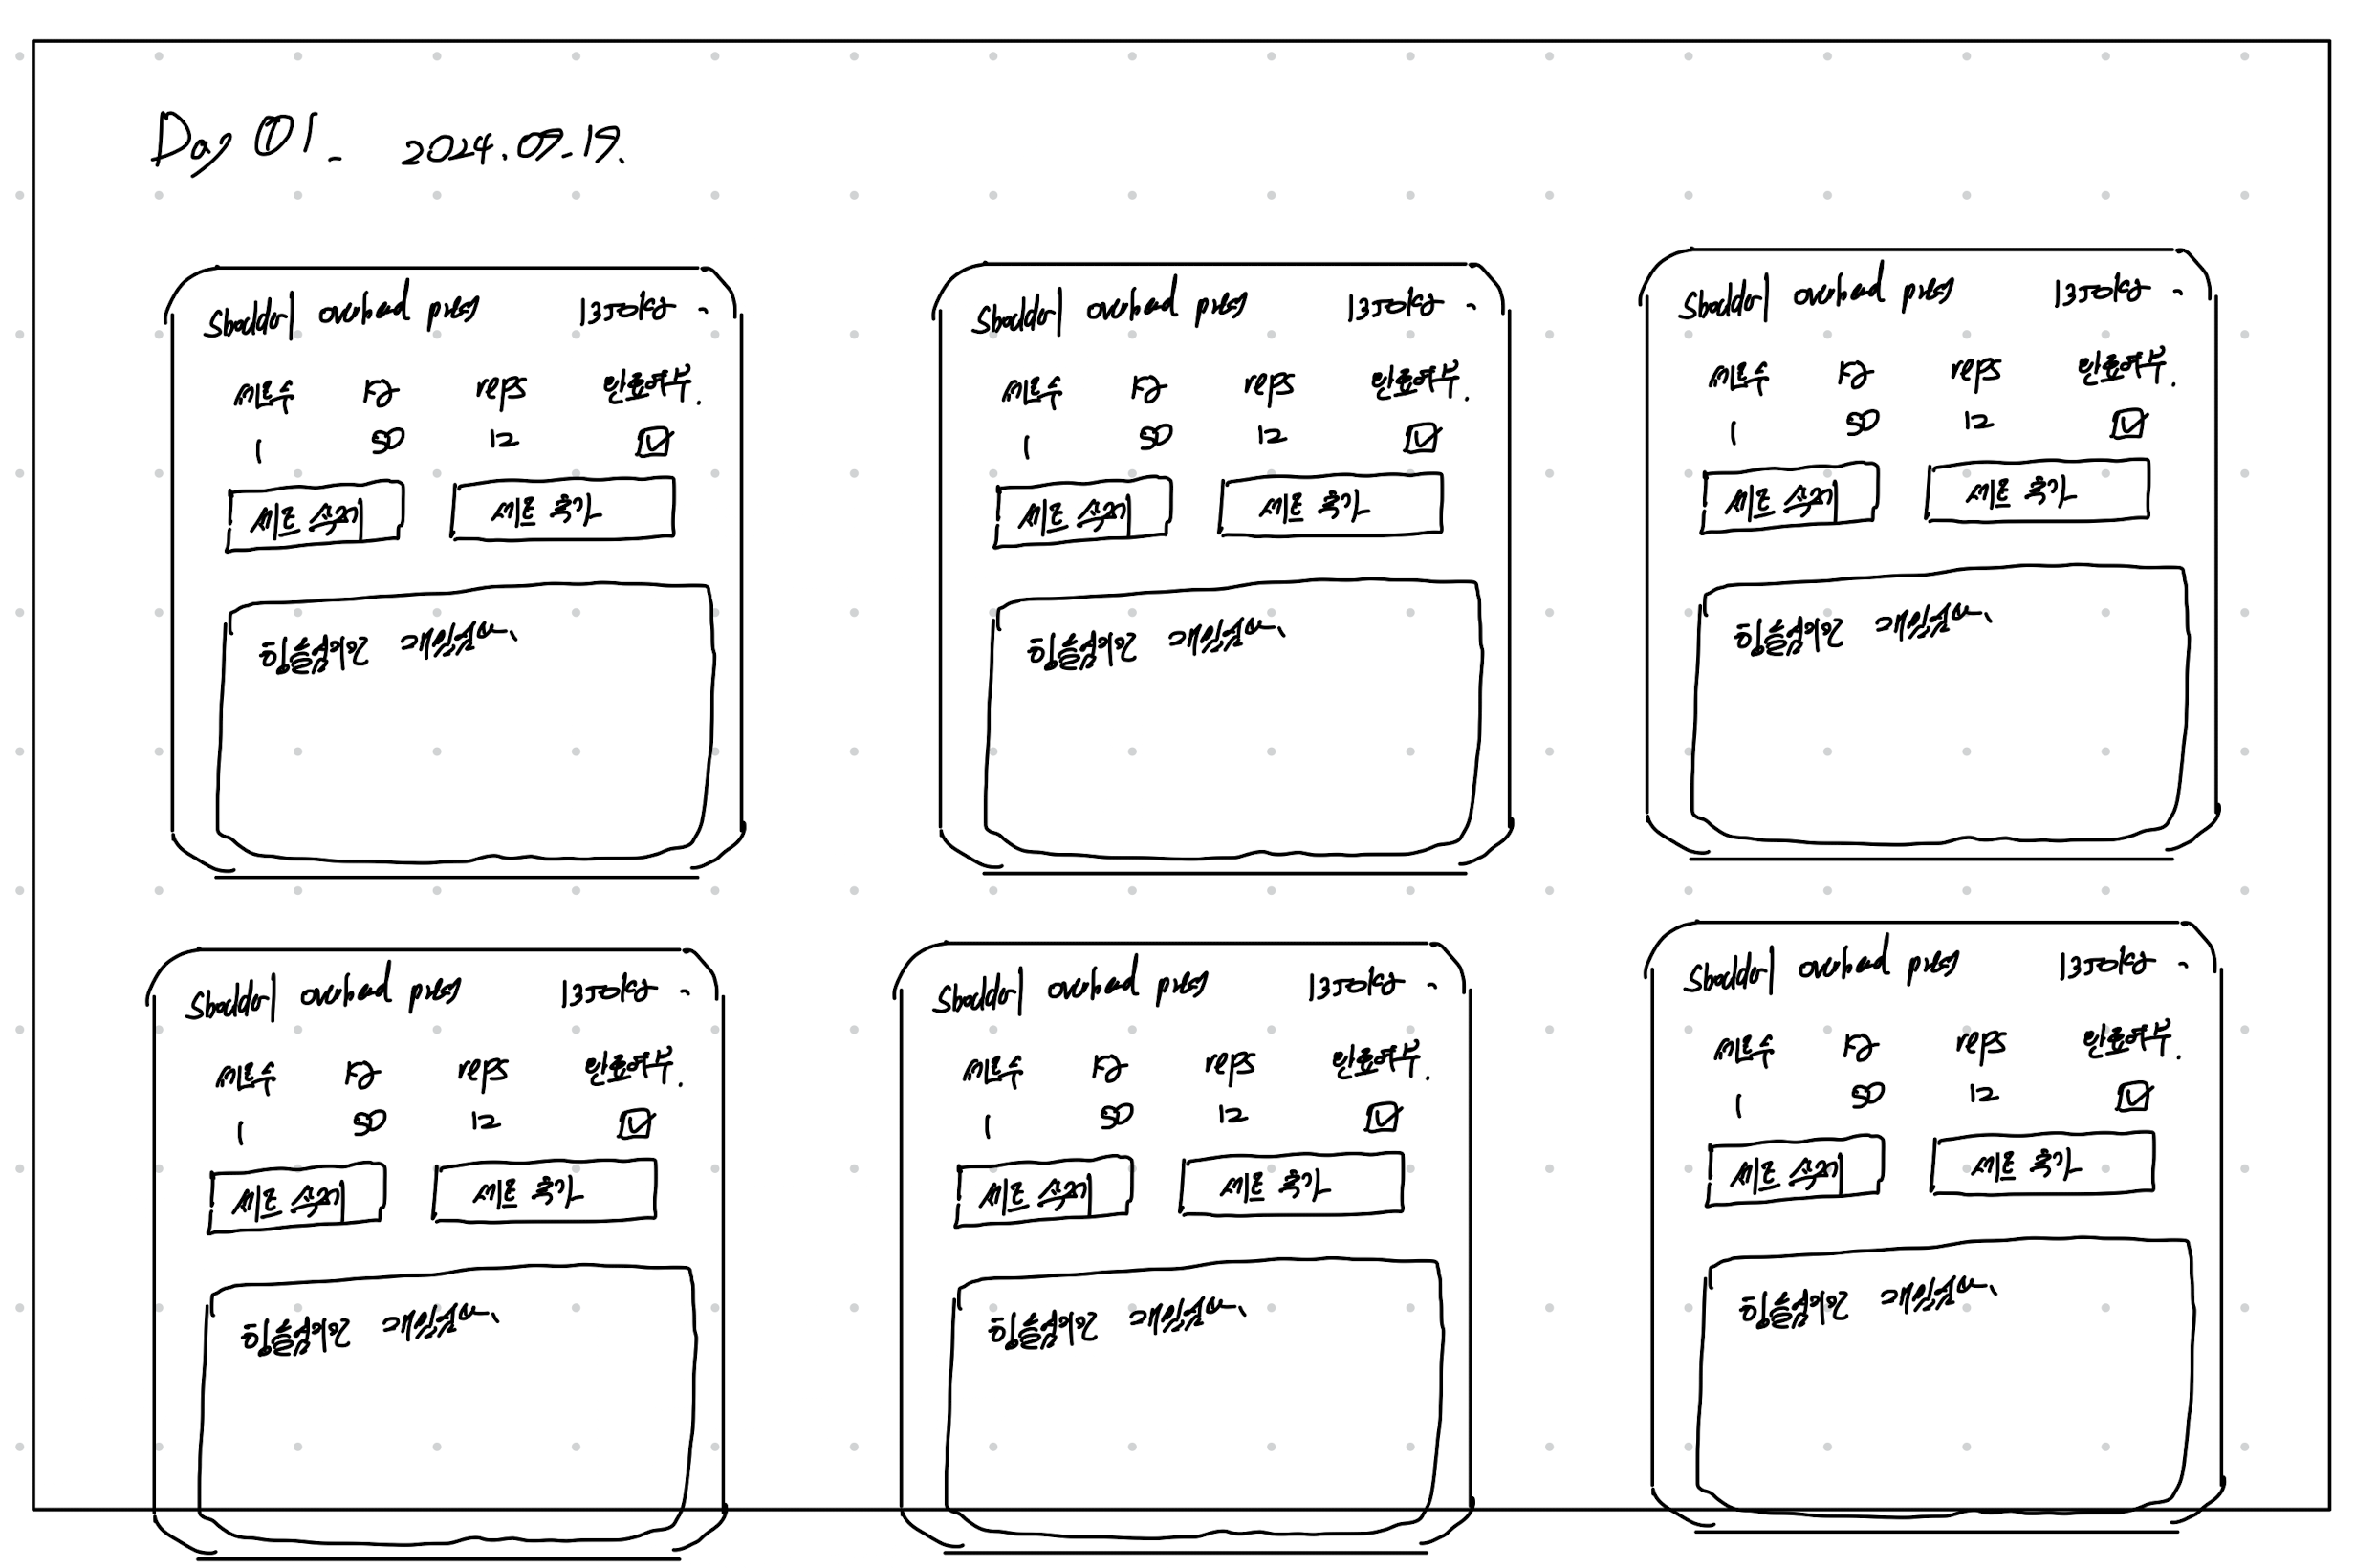 Day 01. 2024.07.17.
Shoulder| overhead press 1350kg
세트수 kg reps 완료여부.
1 50 12
세트 삭제 세트 추가
Shoulder| overhead press 1350kg
세트수 kg reps 완료여부.
1 50 12
세트 삭제 세트 추가
Shoulder| overhead press 1350kg
세트수 kg reps 완료여부.
1 50 12
세트 삭제 세트 추가
Shoulder| overhead press 1350kg
세트수 kg reps 완료여부.
1 50 12
세트 삭제 세트 추가
Shoulder| overhead press 1350kg
세트수 kg reps 완료여부.
1 50 12
세트 삭제 세트 추가
Shoulder| overhead press 1350kg
세트수 kg reps 완료여부.
1 50 12
세트 삭제 세트 추가